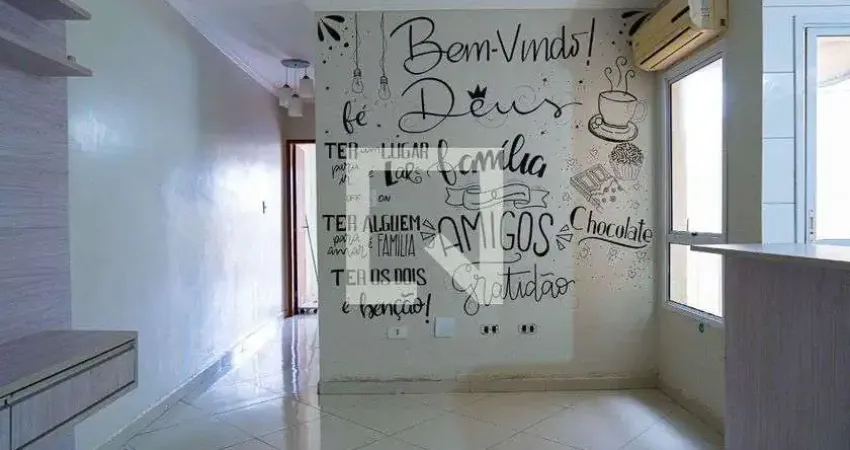 Bem-Vindo!
fé Deus
TER um LUGAR
para
ir é LAR
família
OFF ON
TER ALGUEM
para
amar é FAMÍLIA
AMIGOS
Chocolate
TER OS DOIS
é benção!
Gratidão